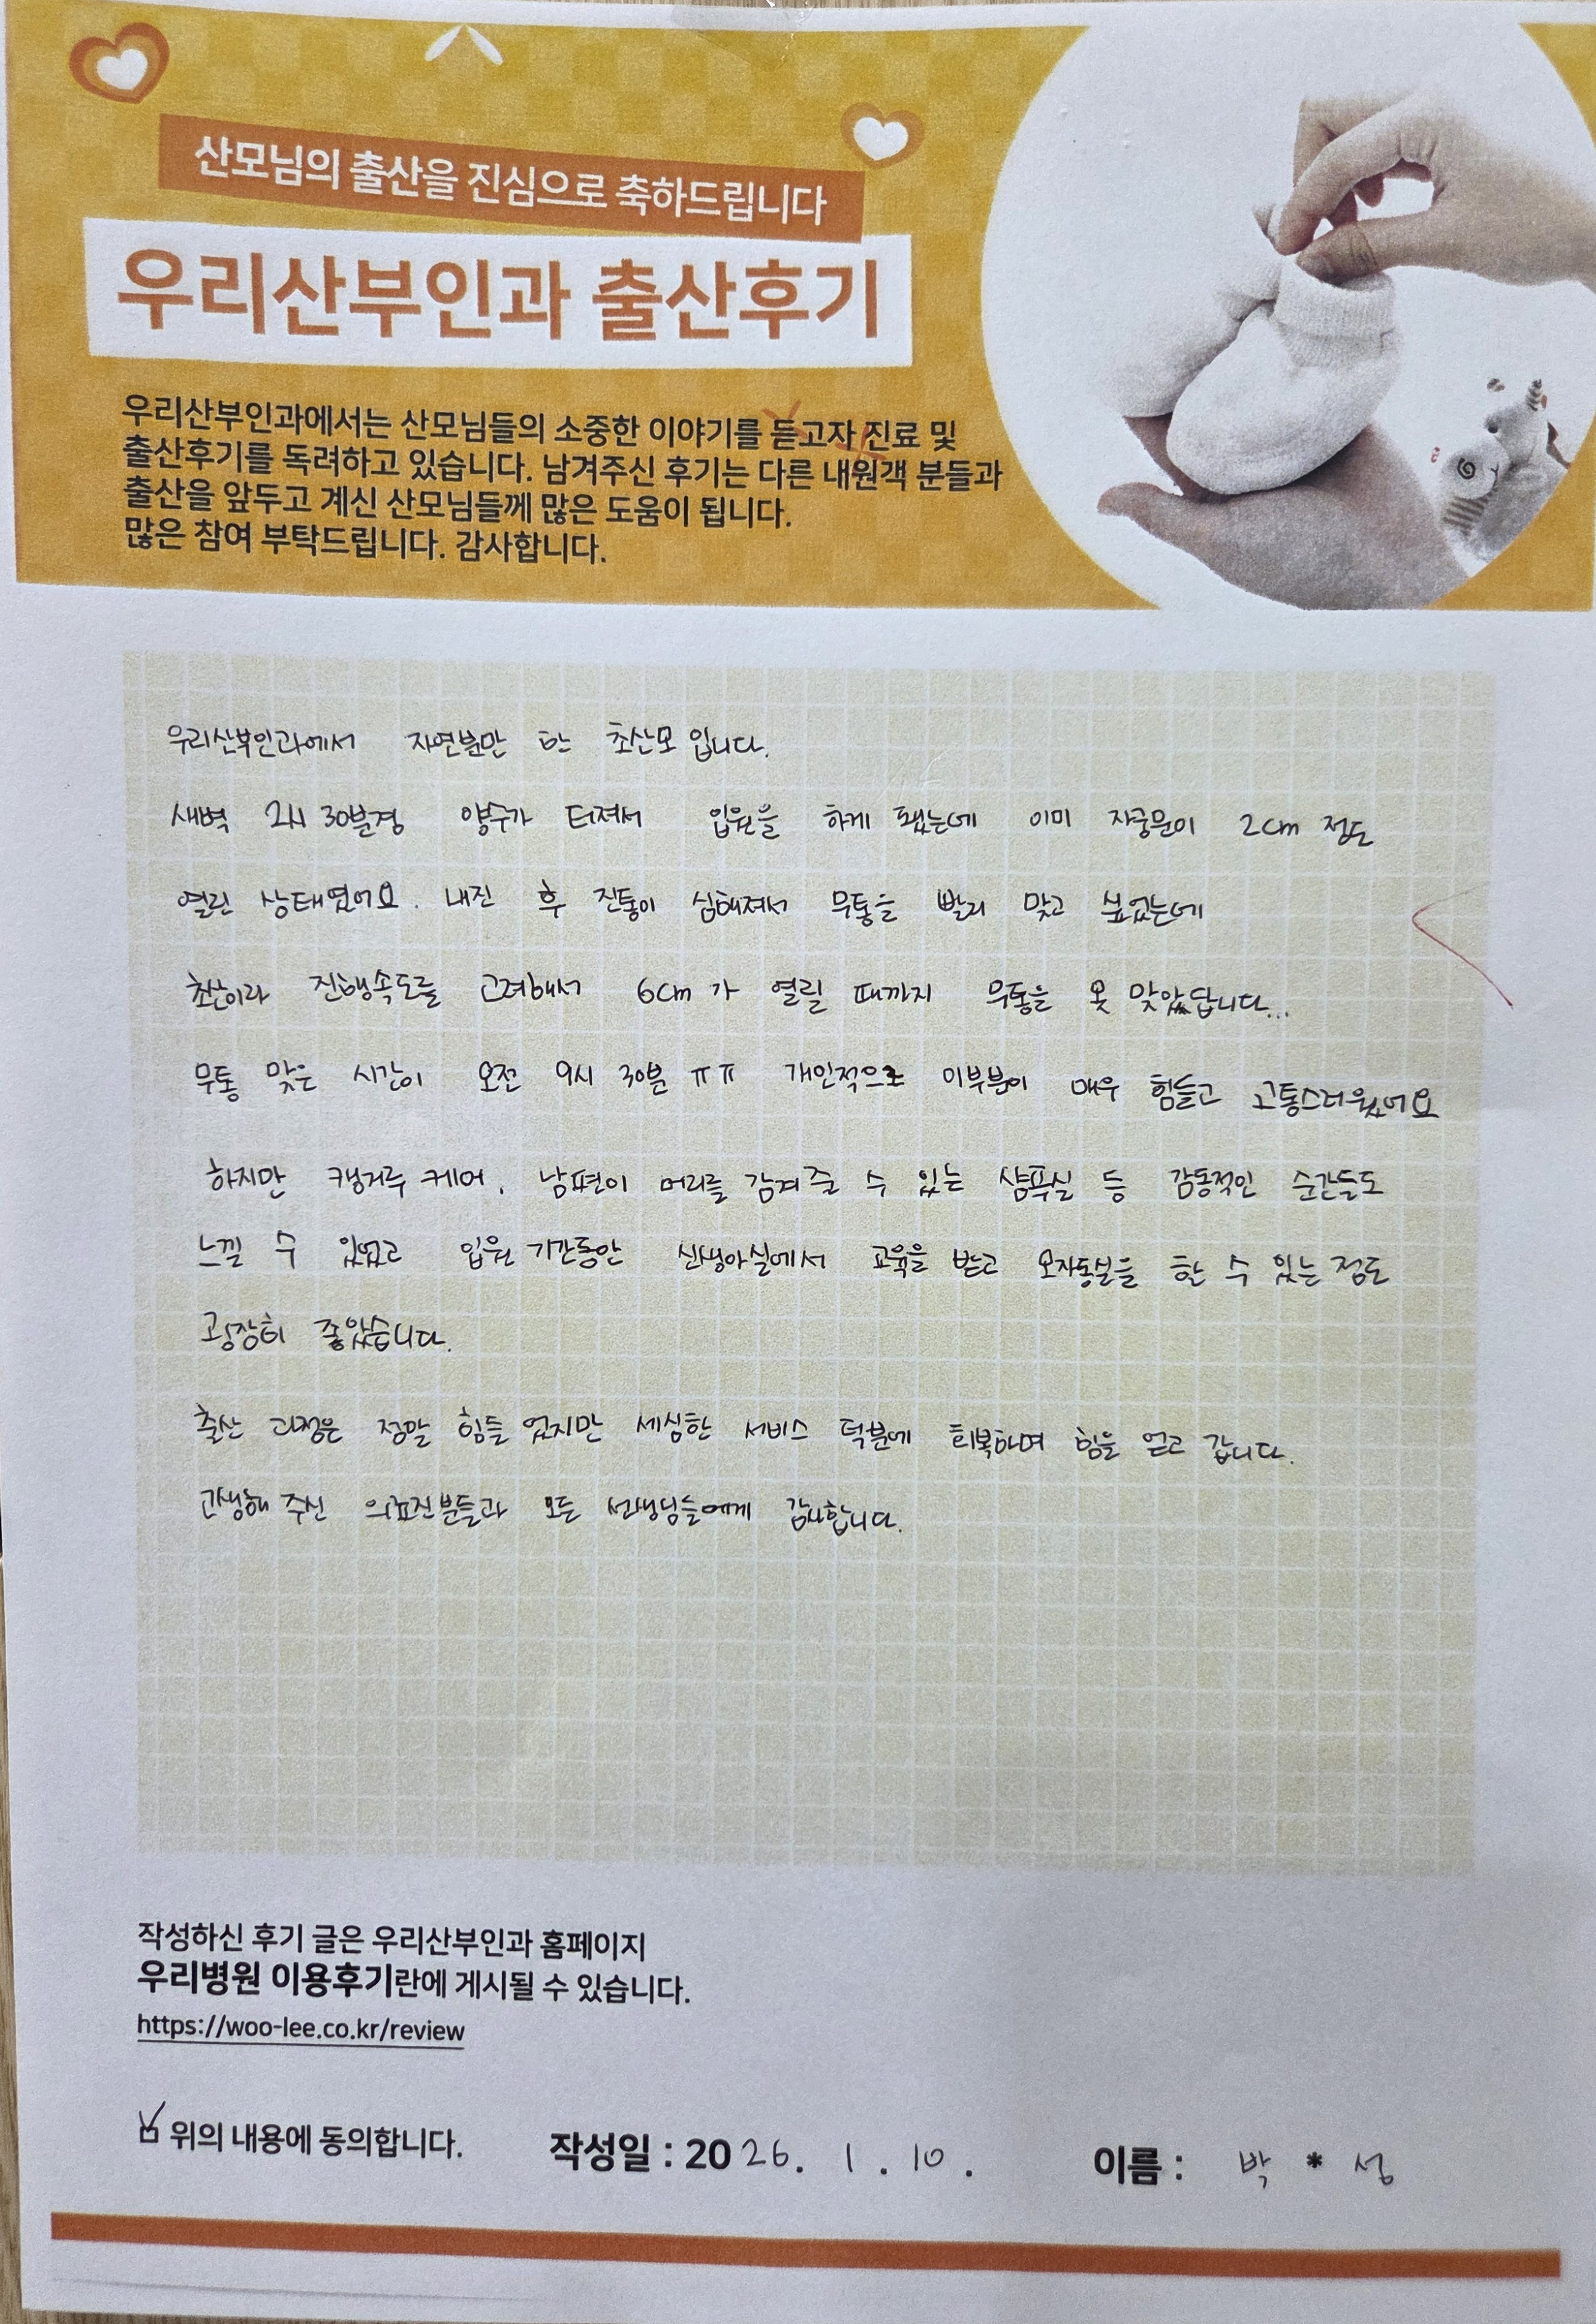 산모님의 출산을 진심으로 축하드립니다
우리산부인과 출산후기
우리산부인과에서는 산모님들의 소중한 이야기를 듣고자 진료 및
출산후기를 독려하고 있습니다. 남겨주신 후기는 다른 내원객 분들과
출산을 앞두고 계신 산모님들께 많은 도움이 됩니다.
많은 참여 부탁드립니다. 감사합니다.
우리산부인과에서 자연분만 한 초산모 입니다.
새벽 2시 30분경 양수가 터져서 입원을 하게 됐는데 이미 자궁문이 2cm 정도
열린 상태였어요. 내진 후 진통이 심해져서 무통을 빨리 맞고 싶었는데
초산이라 진행속도를 고려해서 6cm가 열릴 때까지 무통을 못 맞았답니다...
무통 맞은 시간이 오전 9시 30분 ㅠㅠ 개인적으로 이부분이 매우 힘들고 고통스러웠어요
하지만 캥거루 케어, 남편이 머리를 감겨줄 수 있는 샴푸실 등 감동적인 순간들도
느낄 수 있었고 입원 기간동안 신생아실에서 교육을 받고 모자동실을 할 수 있는 점도
굉장히 좋았습니다.
출산 과정은 정말 힘들었지만 세심한 서비스 덕분에 회복하며 힘을 얻고 갑니다.
고생해 주신 의료진분들과 모든 선생님들에게 감사합니다.
작성하신 후기 글은 우리산부인과 홈페이지
우리병원 이용후기란에 게시될 수 있습니다.
https://woo-lee.co.kr/review
위의 내용에 동의합니다. 작성일 : 2026. 1. 10. 이름 : 박 * 성